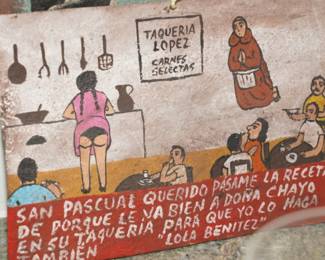 TAQUERIA
LOPEZ
CARNES
SELECTAS
SAN PASCUAL QUERIDO PASAME LA RECETA
DE PORQUE LE VA BIEN A DOÑA CHAYO
EN SU TAQUERIA PARA QUE YO LO HAGA
TAMBIEN "LOLA BENITEZ"